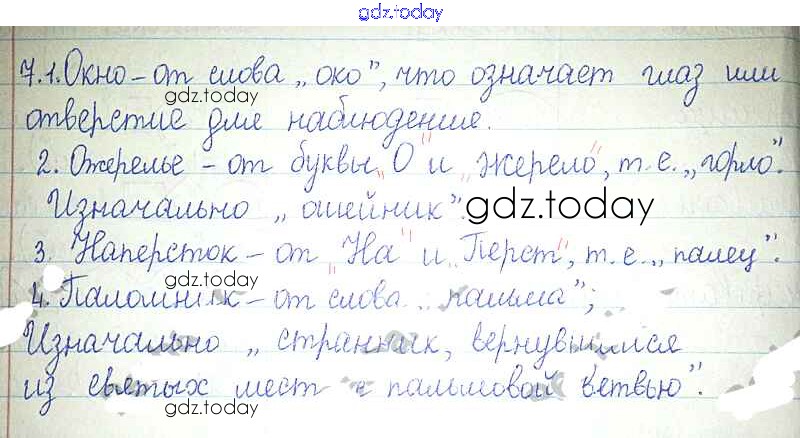 gdz.today
7.1. Окно – от слова „око”, что означает глаз или
gdz.today
отверстие для наблюдение.
2. Ожерелье – от буквы „О” и „жерело”, т.е. „горло”.
Изначально „ошейник”.
gdz.today
3. Наперсток – от „На” и „Перст”, т.е. „палец”.
gdz.today
4. Паломник – от слова „пальма”;
Изначально „странник, вернувшийся
из святых мест с пальмовой ветвью”.
gdz.today